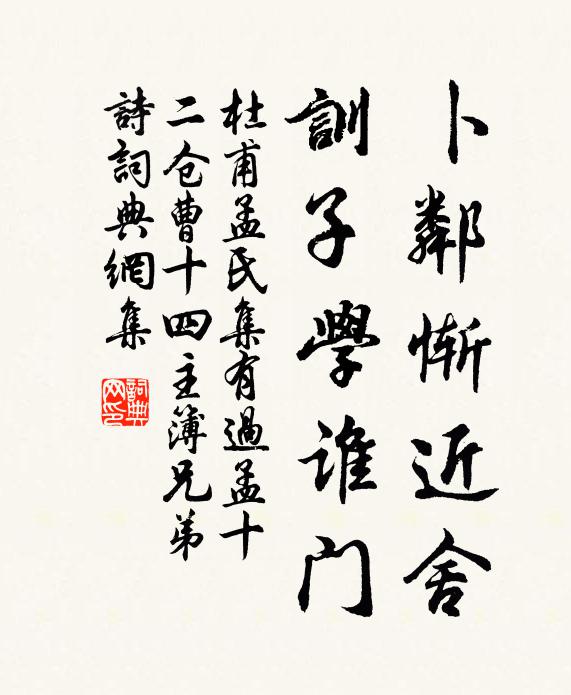 卜鄰慚近舍
訓子學誰門
杜甫孟氏集有過孟十
二仓曹十四主簿兄弟
詩詞典網集
詞典网印